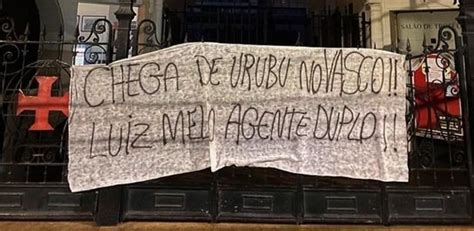 SALÃO DE
CHEGA DE URUBU NO VASCO!!
LUIZ MELO AGENTE DUPLO!!